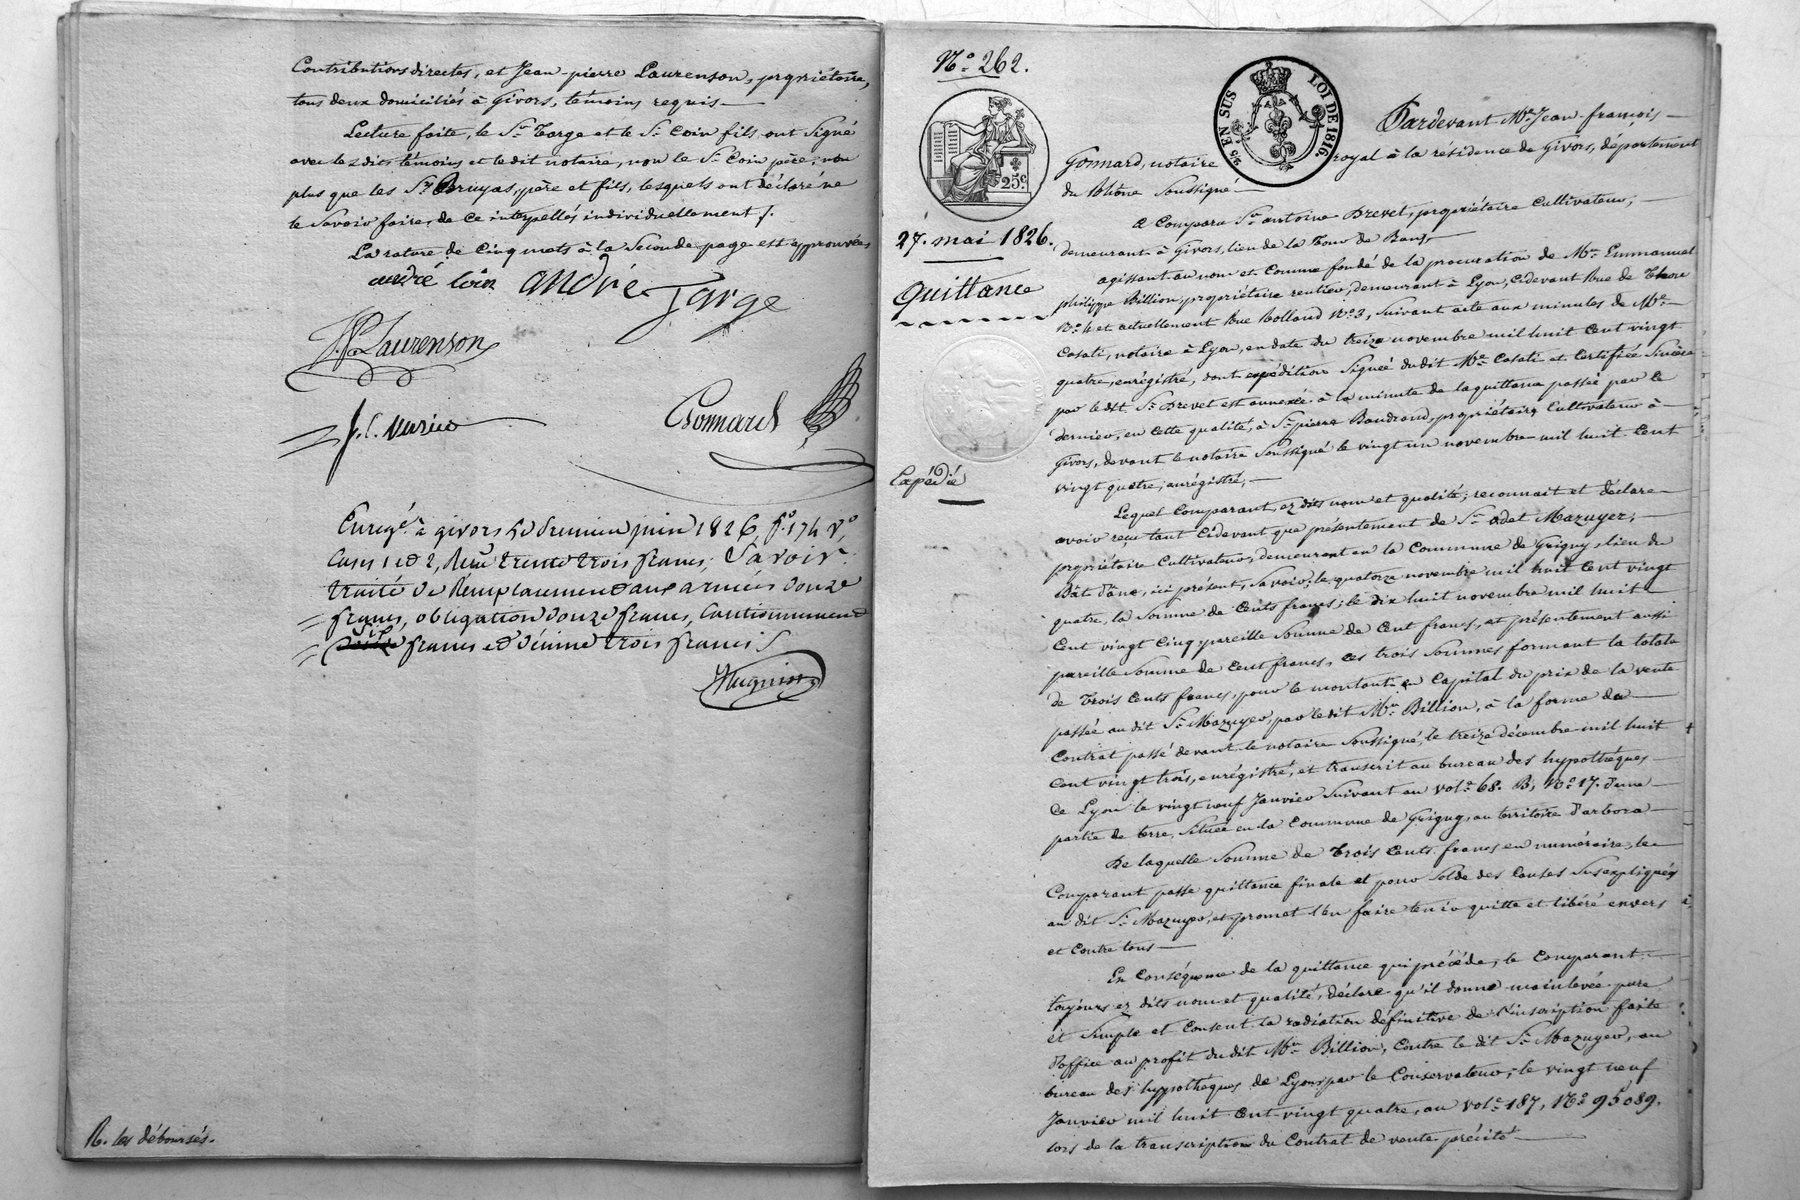 Contributions directes, et Jean-pierre Laurenson, propriétaire,
tous deux domiciliés à Givors, témoins requis.
Lecture faite, le Sr. Targe et le Sr. Coin fils, ont signé
avec les dits témoins et le dit notaire, non le Sr. Coin père, non
plus que les Srs. Bruyas, père et fils, lesquels ont déclaré ne
le savoir faire, de ce interpellés individuellement /.
La rature de cinq mots à la seconde page est approuvée
andré Coin andré Targe
JP Laurenson
Gonnard
Enregé. à givors le premier juin 1826, fo. 174 Vo.
Cases 1 et 2, Reçu trente trois francs; Savoir:
traité de Remplacement aux armées douze
francs, obligation douze francs, Cautionnement
six
francs et Décime trois francs
Huguin
R. les déboursés.
No. 262.
5/c EN SUS LOI DE 1816
25c
27. mai 1826.
Quittance
Expédié
Pardevant Me. Jean-françois
Gonnard, notaire royal à la résidence de Givors, département
du Rhône soussigné
a Comparu Sr. antoine Brevet, propriétaire cultivateur,
demeurant à Givors, lieu de la Tour de Bans,
agissant au nom et comme fondé de la procuration de Mr. Emmanuel
philippe Billion, propriétaire rentier, demeurant à Lyon, cidevant Rue de
No. 4 et actuellement Rue Rolland No. 3, suivant acte aux minutes de Me.
Casati, notaire à Lyon, en date du treize novembre mil huit cent vingt
quatre, enrégistré, dont expédition signée du dit Me. Casati et certifiée sincère
par le dit Sr. Brevet est annexée à la minute de la quittance passée par ce
dernier, en cette qualité, à Sr. pierre Baudrand, propriétaire cultivateur à
Givors, devant le notaire soussigné le vingt un novembre mil huit cent
vingt quatre, enrégistré,
Lequel comparant, ez dits nom et qualité, reconnait et déclare
avoir reçu tant cidevant que présentement de Sr. Mazuyer,
propriétaire cultivateur, demeurant en la Commune de Grigny, lieu du
Bât-d'âne, ici présent, savoir; le quatorze novembre mil huit cent vingt
quatre, la somme de Cents francs; le dix huit novembre mil huit
Cent vingt cinq pareille somme de Cent francs, et présentement aussi
pareille somme de Cent francs, ces trois sommes formant la totale
de Trois Cents francs, pour le montant en Capital du prix de la vente
passée au dit Sr. Mazuyer, par le dit Mr. Billion, à la forme du
Contrat passé devant le notaire soussigné, le treize décembre mil huit
Cent vingt trois, enrégistré, et transcrit au bureau des hypothèques
de Lyon le vingt neuf Janvier suivant au vol. 68. B, No. 17. d'une
partie de terre, située en la Commune de Grigny, au territoire d'arbora
De laquelle somme de Trois Cents francs en numéraire, le
Comparant passe quittance finale et pour solde des causes susexpliquées
au dit Sr. Mazuyer, et promet l'en faire tenir quitte et libéré envers
et contre tous
En Conséquence de la quittance qui précède, le Comparant
toujours ez dits nom et qualité, déclare qu'il donne mainlevée pure
et simple et consent la radiation définitive de l'inscription faite
d'office au profit du dit Mr. Billion, contre le dit Sr. Mazuyer, au
bureau des hypothèques de Lyon, par le Conservateur, le vingt neuf
Janvier mil huit Cent vingt quatre, au vol. 187, No. 95089.
lors de la transcription du Contrat de vente précité